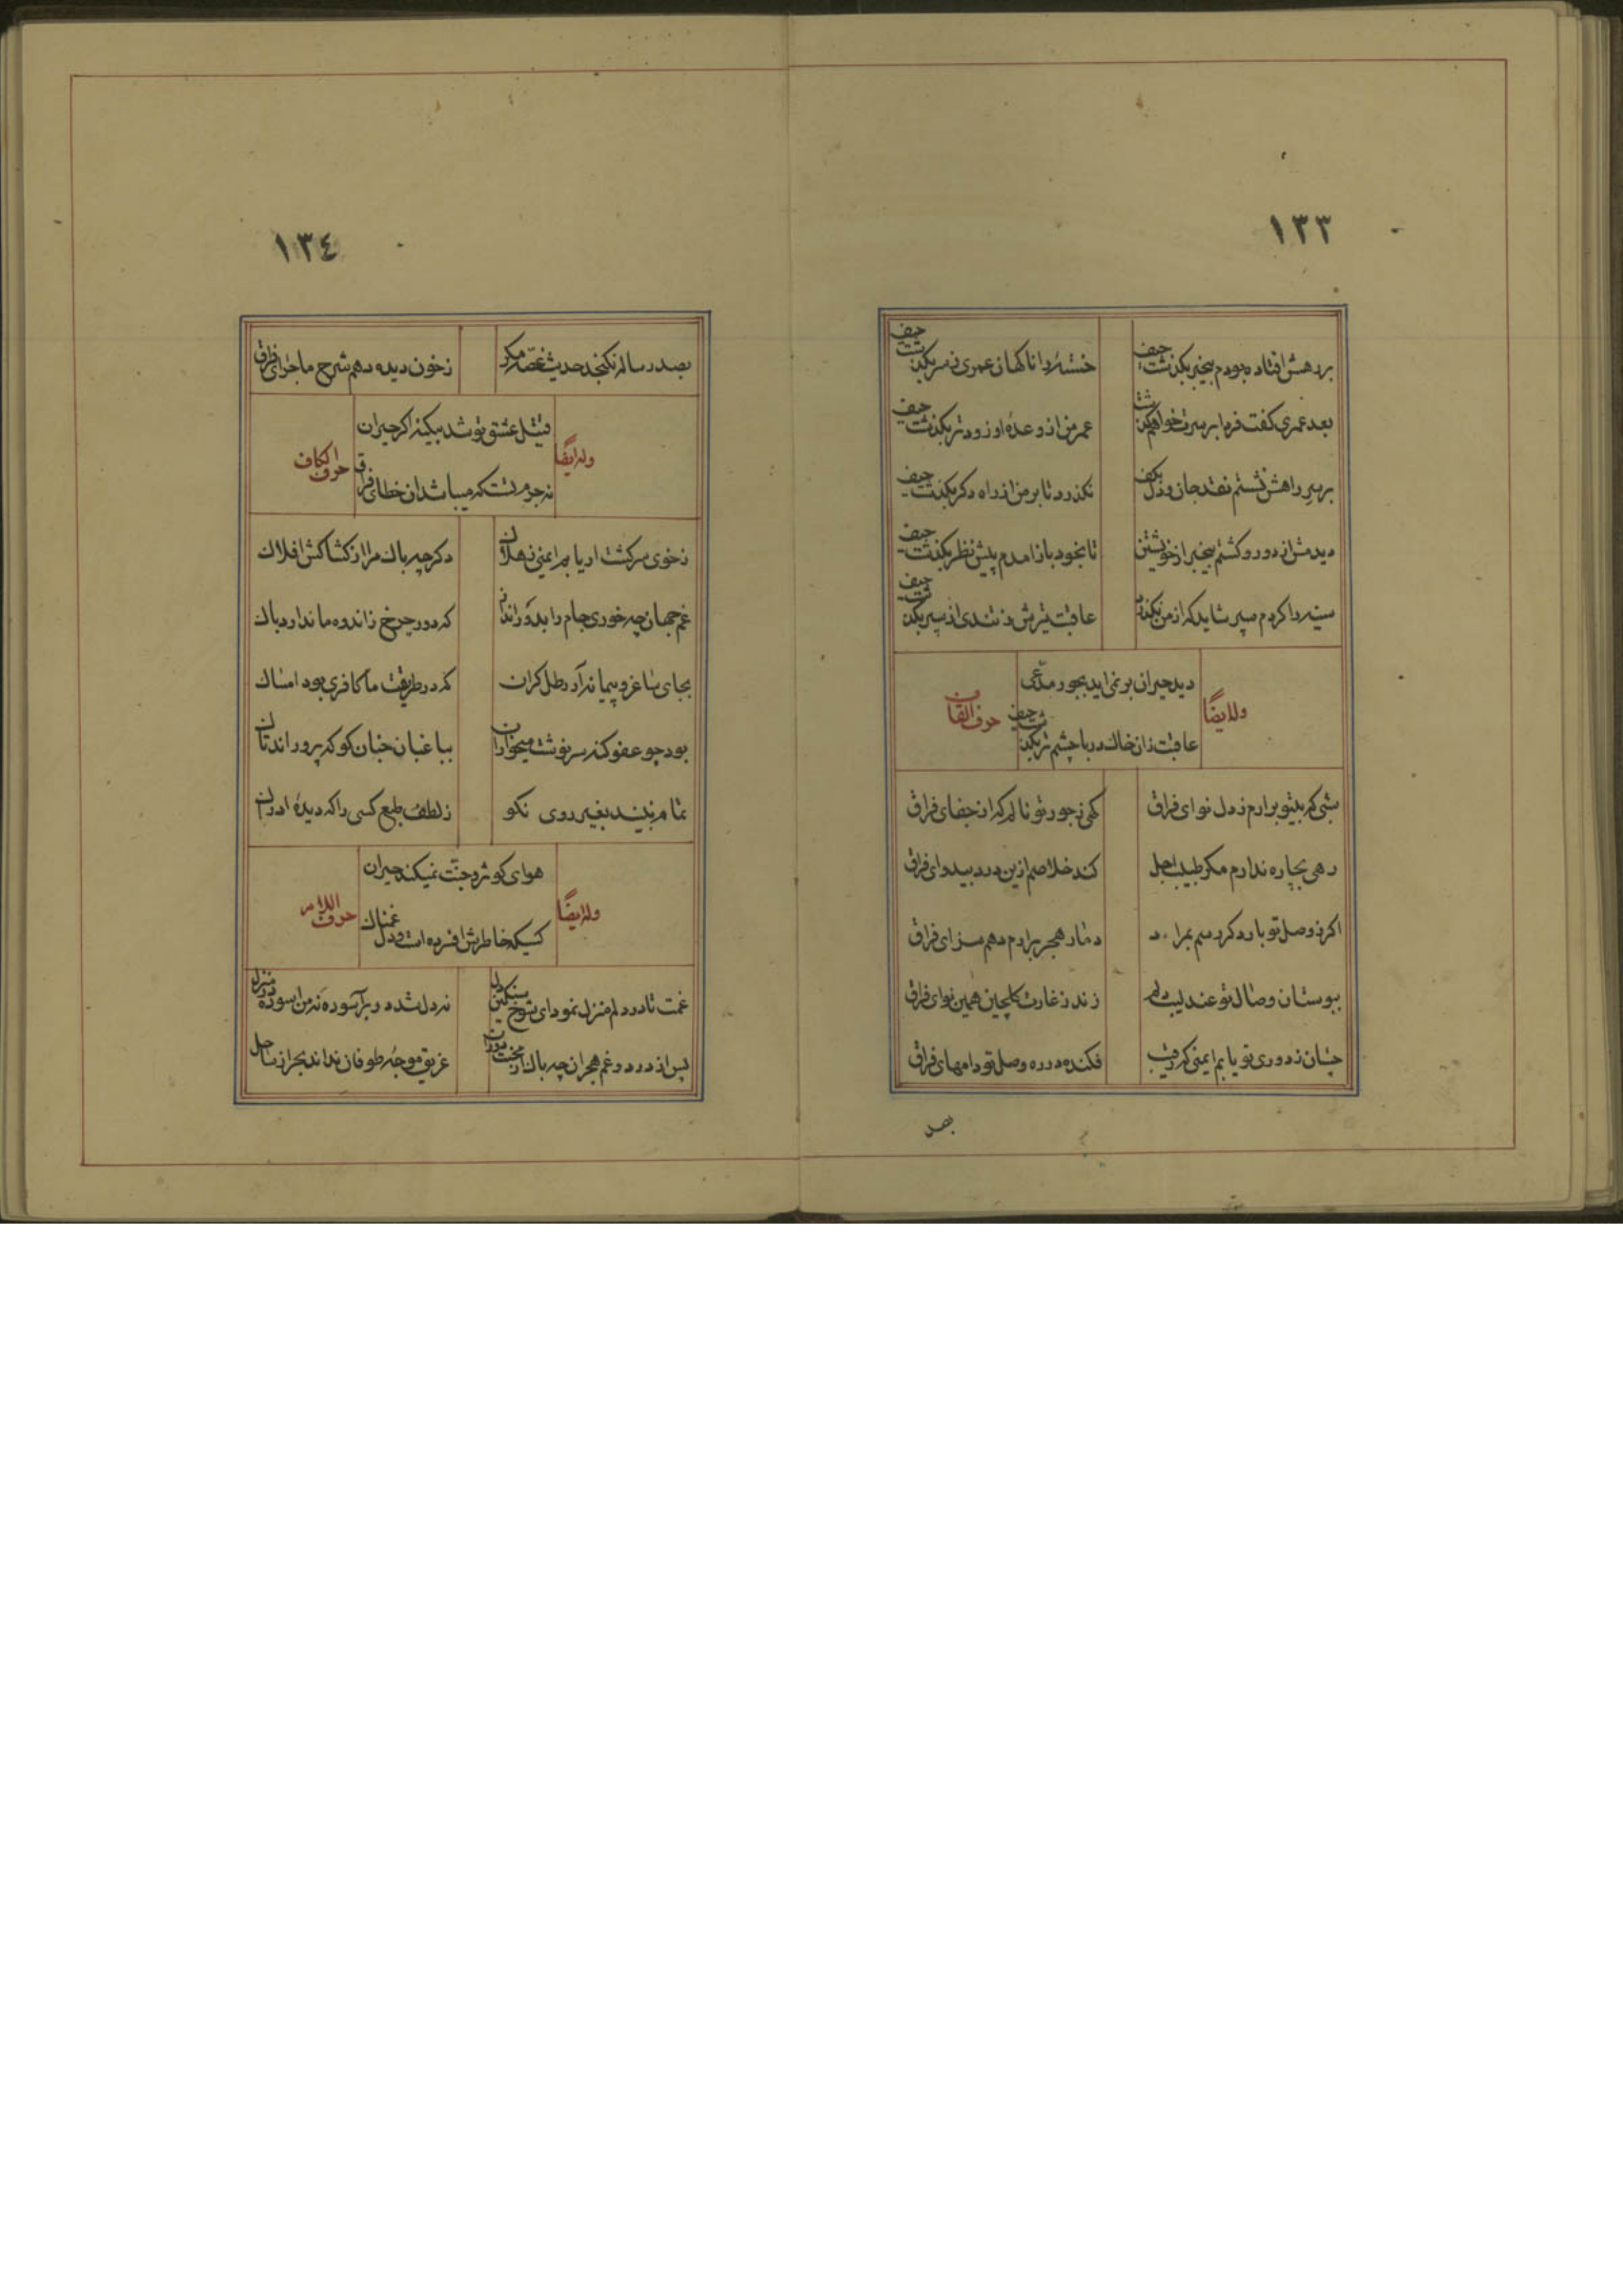 ۱۳۳
بر رهش افتاده بودم بیخبر بگذشت حیف
خسته را ناگهان عمری ز سر بگذشت حیف
بعد عمری گفت فردا بر سرت خواهم گذشت
عمر من از وعدهٔ او زودتر بگذشت حیف
بر سر راهش نشستم نقد جان و دل بکف
نگذرد تا بر من از راه دگر بگذشت حیف
دیدمش از دور و گشتم بیخبر از خویشتن
تا بخود باز امدم پیش نظر بگذشت حیف
سینه را کردم سپر شاید که از من نگذرد
عاقبت تیرش ز تندی از سپر بگذشت حیف
دید حیران بر نمی اید بجور مدّعی
عاقبت زان خاک در با چشم تر بگذشت حیف
وله ایضًا
حرف القاف
شبی که بیتو برارم ز دل نوای فراق
کهی ز جور تو نالم که از جفای فراق
رهی بچاره ندارم مگر طبیب اجل
کند خلاصم ازین درد بیدوای فراق
اگر ز وصل تو بار دگر رسم بمراد
دمار هجر برارم دهم سزای فراق
ببوستان وصال تو عندلیب دلم
زند ز غارت گلچین همین نوای فراق
چسان ز دوری تو یابم ایمنی که رقیب
فکنده در ره وصل تو دامهای فراق
بصد
۱۳٤
بصد رساله نگنجد حدیث غصّه مگر
ز خون دیده دهم شرح ماجرای فراق
قتیل عشق تو شد بیگنه اگر حیران
نه جرم تست که میباشد ان خطای فراق
وله ایضًا
حرف الکاف
ز خوی سرکشت ار یابم ایمنی ز هلاک
دگر چه باک مرا از کشاکش افلاک
غم جهان چه خوری جام را بدور انداز
که دور چرخ ز اندوه ما ندارد باک
بجای ساغر و پیمانه آر رطل گران
که در طریقت ما کافری بود امساک
بود چو عفو گنه سرنوشت میخواران
بباغبان جنان گو که پرورا ندتاک
تمام نبیند بغیر روی نکو
ز لطف طبع کسی را که دیدهٔ ادراک
هوای کوثر و جنّت نمیکند حیران
کسیکه خاطرش افسرده است و دل غمناک
وله ایضًا
حرف اللام
غمت تا در دلم منزل نمود ای شوخ سنگین دل
نه دل شد در بر آسوده نه من اسوده در منزل
پس از درد و غم هجران چه باک از محنت دوران
غریق موجهٔ طوفان نداند بحر از ساحل